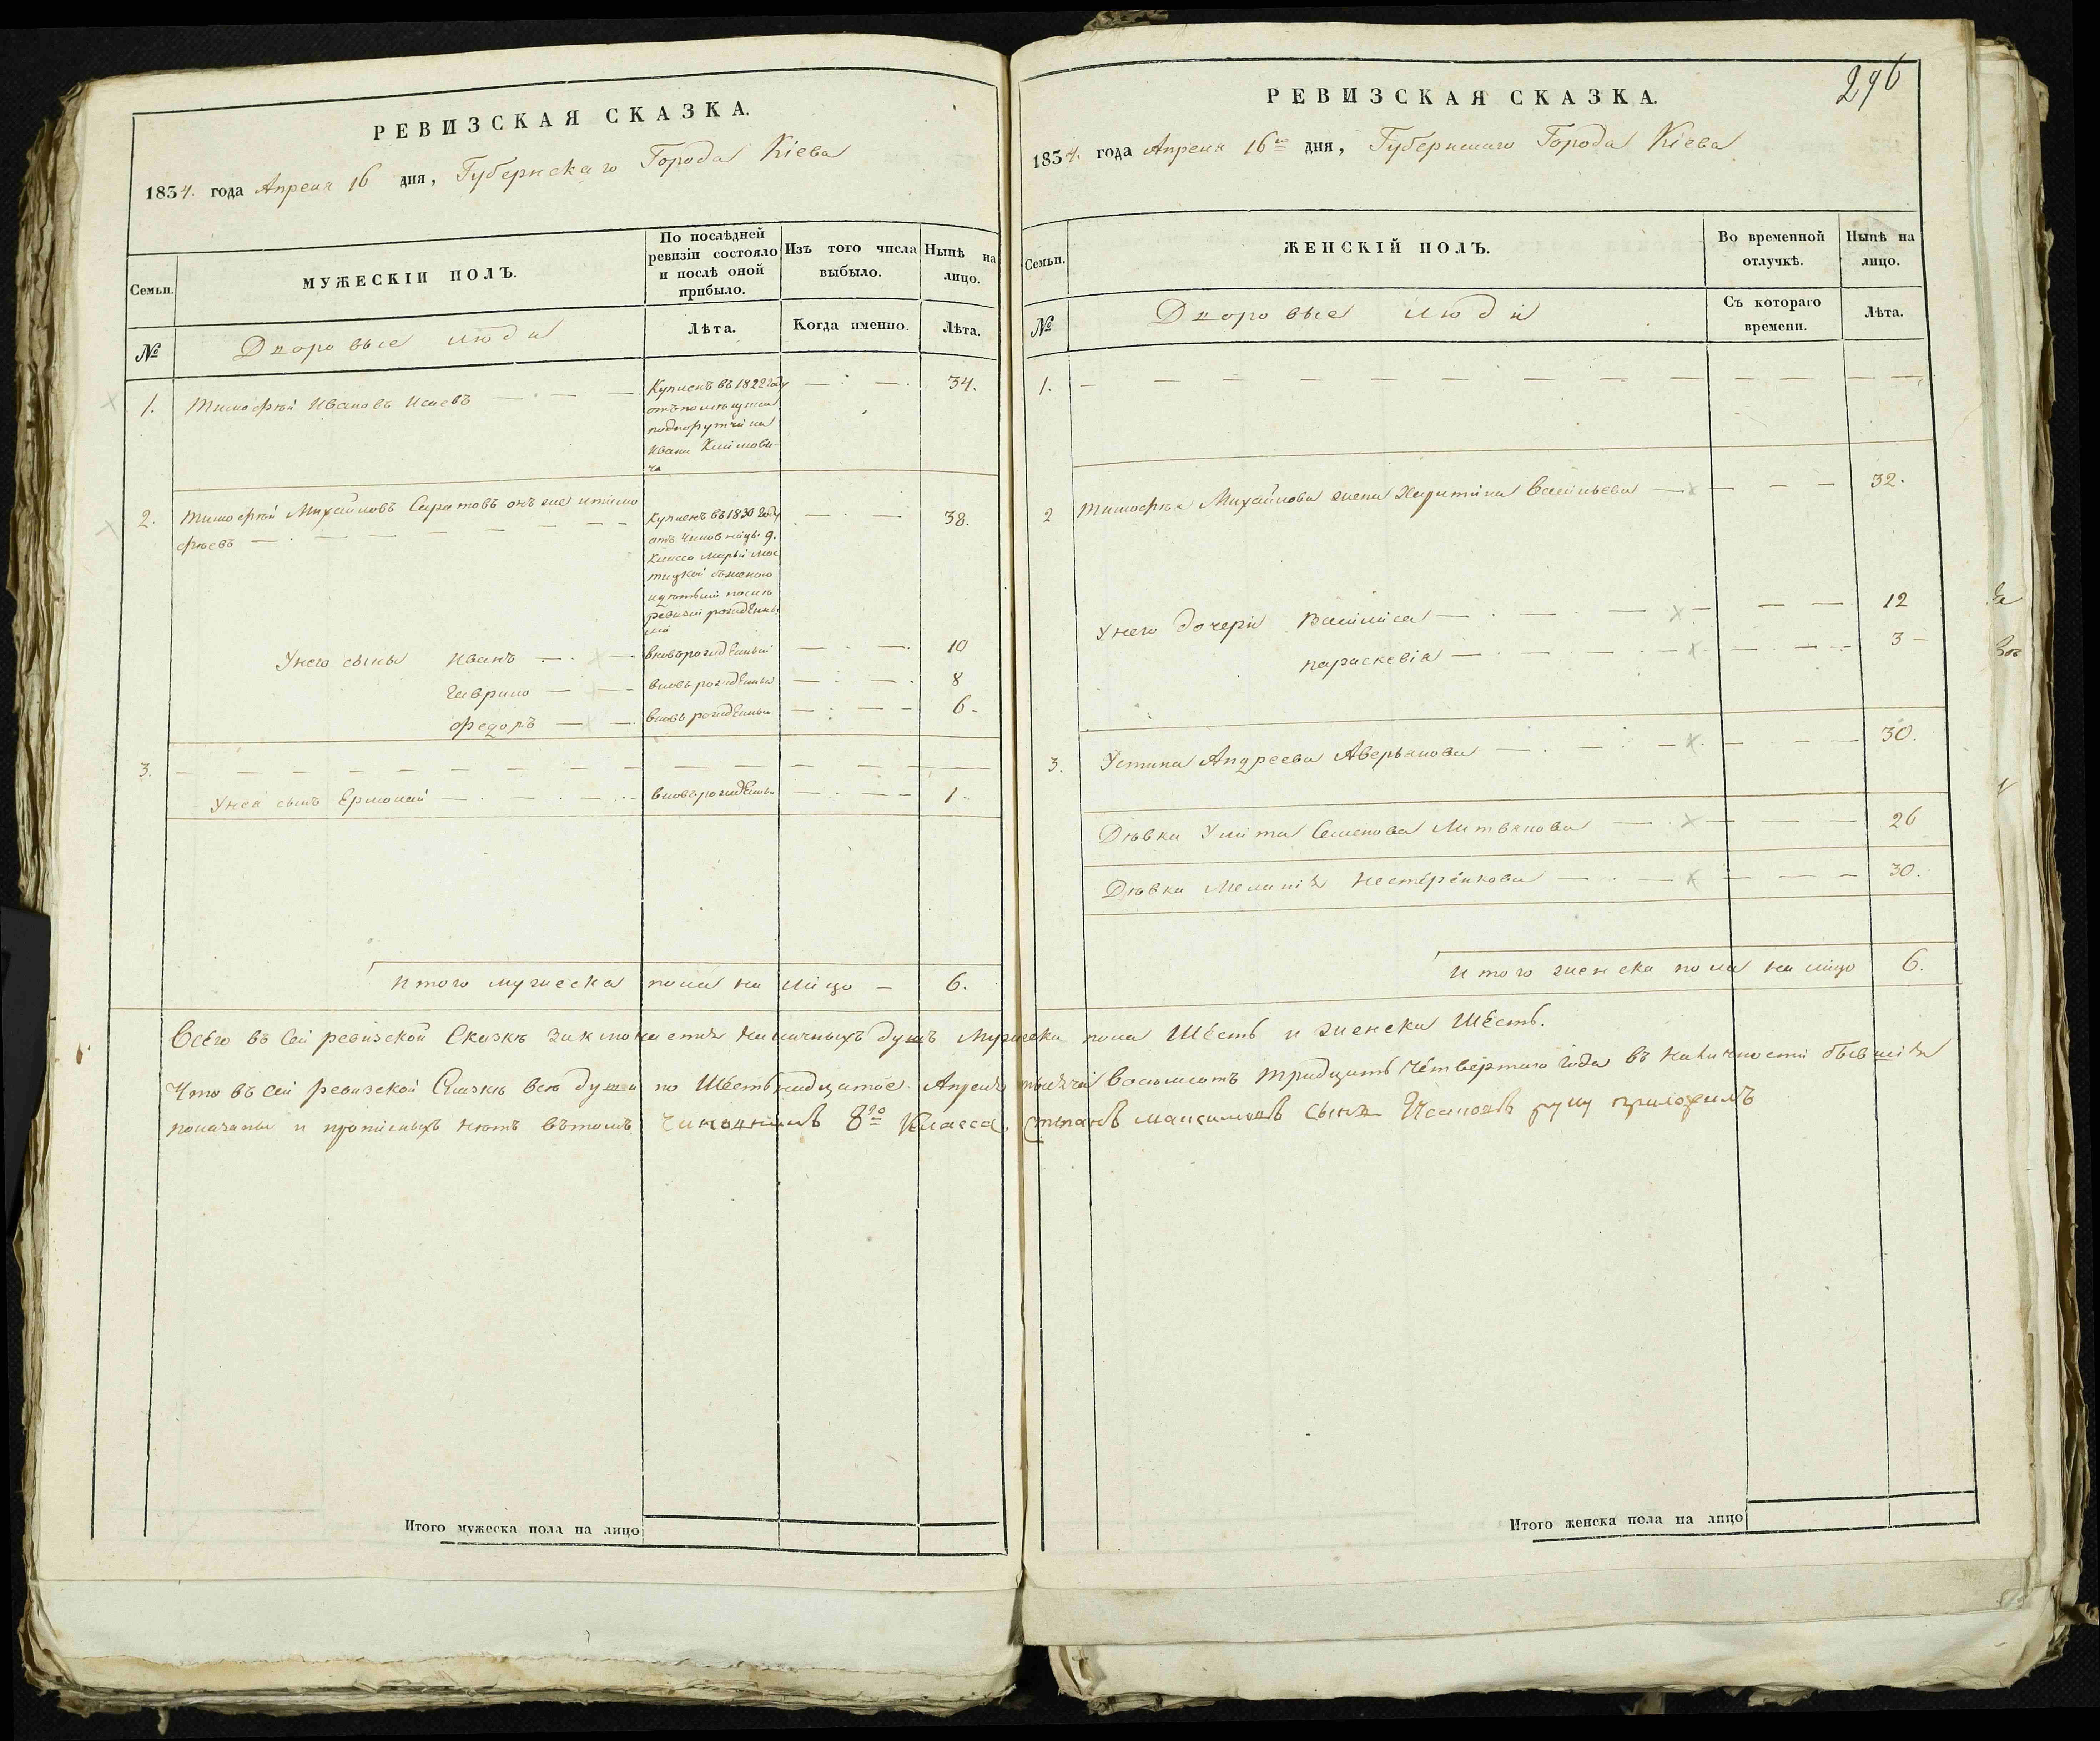 РЕВИЗСКАЯ СКАЗКА.
1834. года Апреля 16 дня, Губернскаго Города Кіева
Семьи.
МУЖЕСКІЙ ПОЛЪ.
По послѣдней ревизіи состояло и послѣ оной прибыло.
Изъ того числа выбыло.
Нынѣ на лицо.
№
Дворовые люди
Лѣта.
Когда именно.
Лѣта.
1. Тимофѣй Ивановъ Исаевъ
Купленъ въ 1822 году
отъ помѣщика
подпоручика
Ивана
34.
2. Тимофѣй Михайловъ Саратовъ онъ же и Тимо
фѣевъ
Купленъ въ 1830 году
отъ чиновницы 9.
Класса Марьи
съ женою
и дѣтьми после
ревизіи рожденны
ми
38.
У него сыны Иванъ вновьрожденный 10
Гаврило вновь рожденны 8
Федоръ вновь рожденны 6
3.
У нея сынъ Ермолай вновьрожденны 1
Итого мужеска пола на лицо 6.
Всего въ сей ревизской Сказкѣ заключается наличныхъ душъ Мужеска пола Шесть и женска Шесть.
Что въ сей ревизской Сказкѣ всѣ души по Шестьнадцатое Апреля тысяча Восемсотъ тридцать Четвертаго года въ наличности бывшія
показаны и прописныхъ нѣтъ въ томъ чиновникъ 8го Класса, Степанъ Максимовъ сынъ руку приложилъ
Итого мужеска пола на лицо
296
РЕВИЗСКАЯ СКАЗКА.
1834. года Апреля 16го дня, Губернскаго Города Кіева
Семьи.
ЖЕНСКІЙ ПОЛЪ.
Во временной отлучкѣ.
Нынѣ на лицо.
№
Дворовые люди
Съ котораго времени.
Лѣта.
1.
2 Тимофѣя Михайлова жена Харитина Васильева 32.
У него дочери Василиса 12
Параскевія 3
3. Устина Андреева Аверьянова 30.
Дѣвка Улита Семенова Литвякова 26
Дѣвка Меланія Нестеренкова 30.
Итого женска пола на лицо 6.
Итого женска пола на лицо